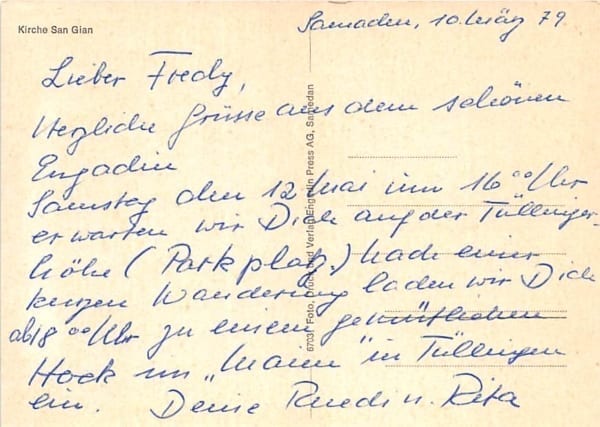 Kirche San Gian
Samaden, 10. März 79
Lieber Fredy,
Herzliche Grüsse aus dem schönen
Engadin
Samstag den 12 Mai um 16⁰⁰ Uhr
erwarten wir Dich auf der Tüllinger-
höhe (Parkplatz.) Nach einer
kurzen Wanderung laden wir Dich
ab 18⁰⁰ Uhr zu einem gemütlichen
Hock im "Mann" in Tüllingen
ein. Deine Ruedi u. Rita
6703 Foto, Druck und Verlag Engadin Press AG, Samedan